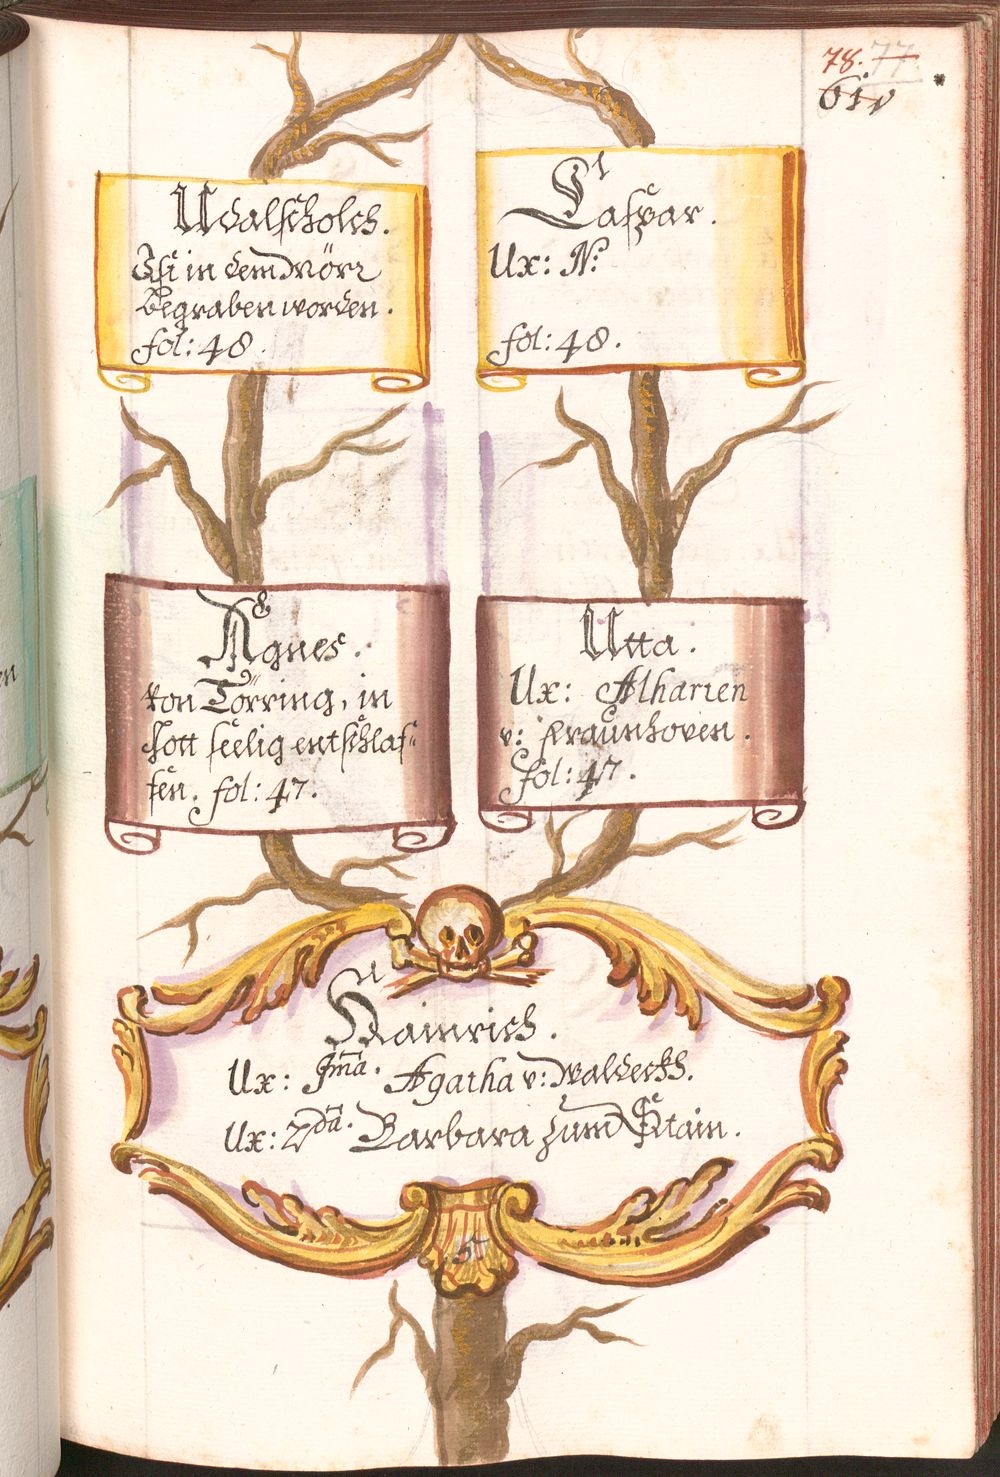 78. 77.
61v
Udalschalch.
Ist in dem Mörr
Begraben worden.
fol: 48.
Caspar.
Ux: N:
fol: 48.
Agnes.
von Törring, in
Gott seelig entschlaf-
fen. fol: 47.
Utta.
Ux: Alharten
v: Fraunhoven.
fol: 47.
Hainrich.
Ux: 1ma. Agatha v: Waldeckh.
Ux: 2da. Barbara zum Stain.
5